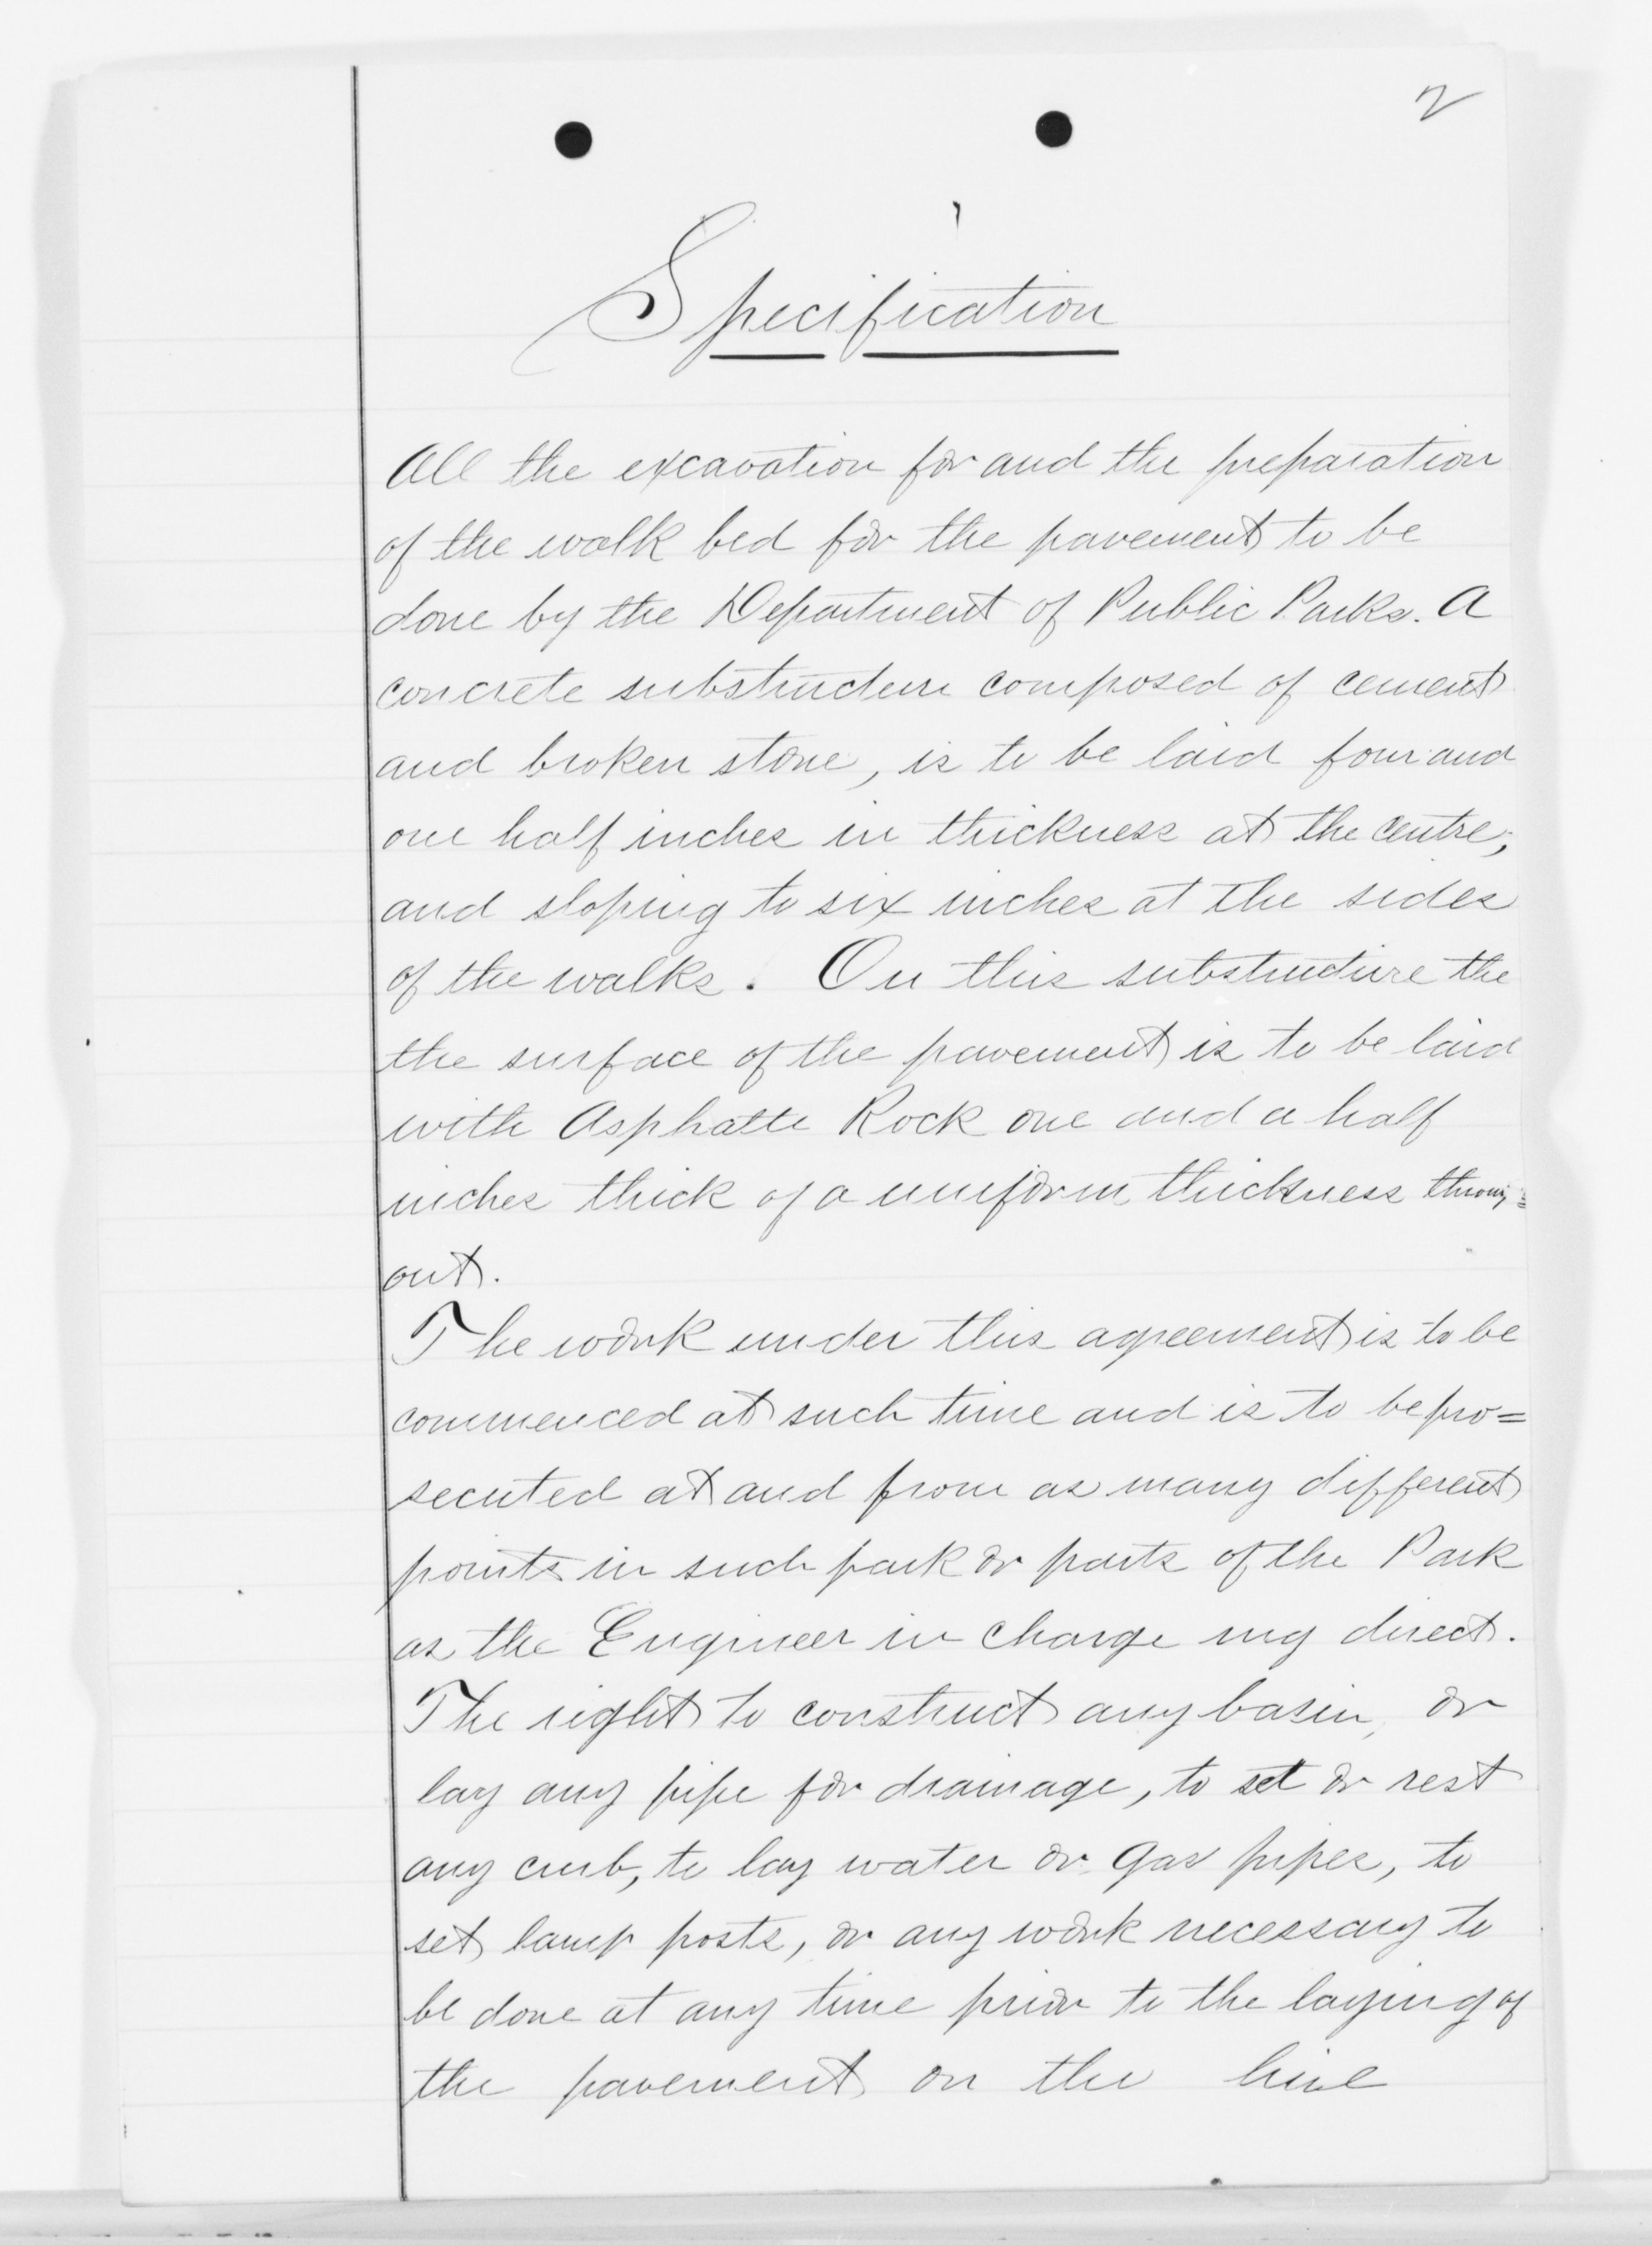 2
Specification
All the excavation for and the preparation
of the walk bed for the pavement to be
done by the Department of Public Parks. A
concrete substructure composed of cement
and broken stone, is to be laid four and
one half inches in thickness at the centre,
and sloping to six inches at the sides
of the walks. On this substructure the
the surface of the pavement is to be laid
with Asphalte Rock one and a half
inches thick of a uniform thickness throug=
out.
The work under this agreement is to be
commenced at such time and is to be pro=
secuted at and from as many different
points in such park or parts of the Park
as the Engineer in charge my direct.
The right to construct any basin, or
lay any pipe for drainage, to set or rest
any curb, to lay water or gas pipes, to
set lamp posts, or any work necessary to
be done at any time prior to the laying of
the pavement on the line